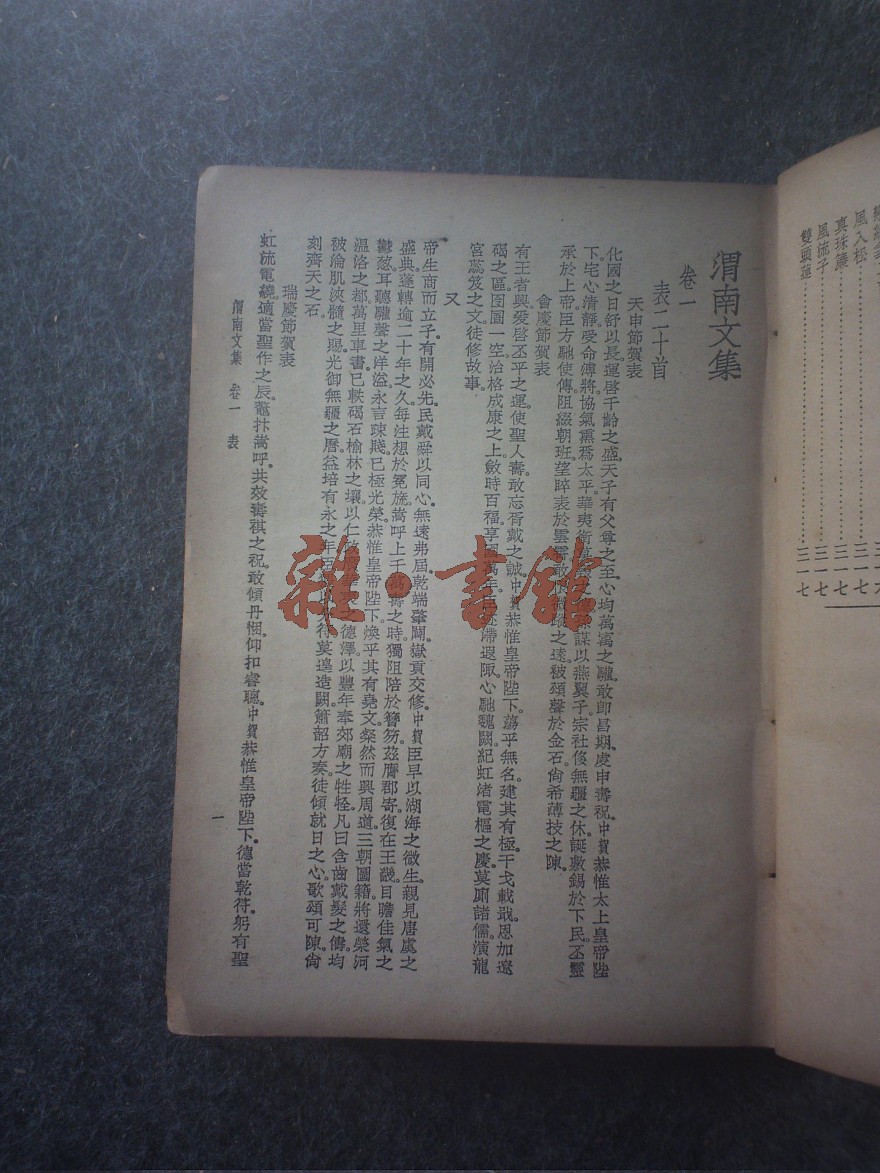 渭南文集
卷一
表二十首
天申節賀表
化國之日舒以長運啓千齡之盛天子有父尊之至心均萬㝢之驩敢卽昌期虔申壽祝中賀恭惟太上皇帝陛
下宅心清靜受命溥將協氣熏爲太平華夷衛
謀以燕翼子宗社侈無疆之休誕敷錫於下民丕靈
承於上帝臣方馳使傳阻綴朝班望睟表於雲霄
之遠被頌聲於金石尙希薄技之陳
會慶節賀表
有王者興爰啓丕平之運使聖人壽敢忘胥戴之誠中賀恭惟皇帝陛下蕩乎無名建其有極干戈載戢恩加遼
碣之區囹圄一空治格成康之上斂時百福享
萬年
滯遐陬心馳魏闕紀虹渚電樞之慶莫廁諸儒演龍
宮蕊笈之文徒修故事
又
帝生商而立子有開必先民戴舜以同心無遠弗屆乾端肇闢嶽貢交修中賀臣早以湖海之微生親見唐虞之
盛典蓬轉逾二十年之久每注想於冕旒嵩呼上千萬壽之時獨阻陪於簪笏茲膺郡寄復在王畿目瞻佳氣之
鬱葱耳聽驩聲之洋溢永言踈賤已極光榮恭惟皇帝陛下煥乎其有堯文粲然而興周道三朝圖籍將還榮河
溫洛之都萬里車書已軼碣石榆林之壤以仁
之德澤以豐年奉郊廟之牲牷凡曰含齒戴髮之儔均
被淪肌浹髓之賜光御無疆之曆益培有永之年
符莫遑造闕簫韶方奏徒傾就日之心歌頌可陳尙
刻齊天之石
瑞慶節賀表
虹流電繞適當聖作之辰鼇抃嵩呼共效壽祺之祝敢傾丹悃仰扣睿聰中賀恭惟皇帝陛下德當乾符躬有聖
渭南文集 卷一 表
一
風入松
三一七
真珠簾
三一七
風流子
三一七
雙頭蓮
三一七
雜·書館